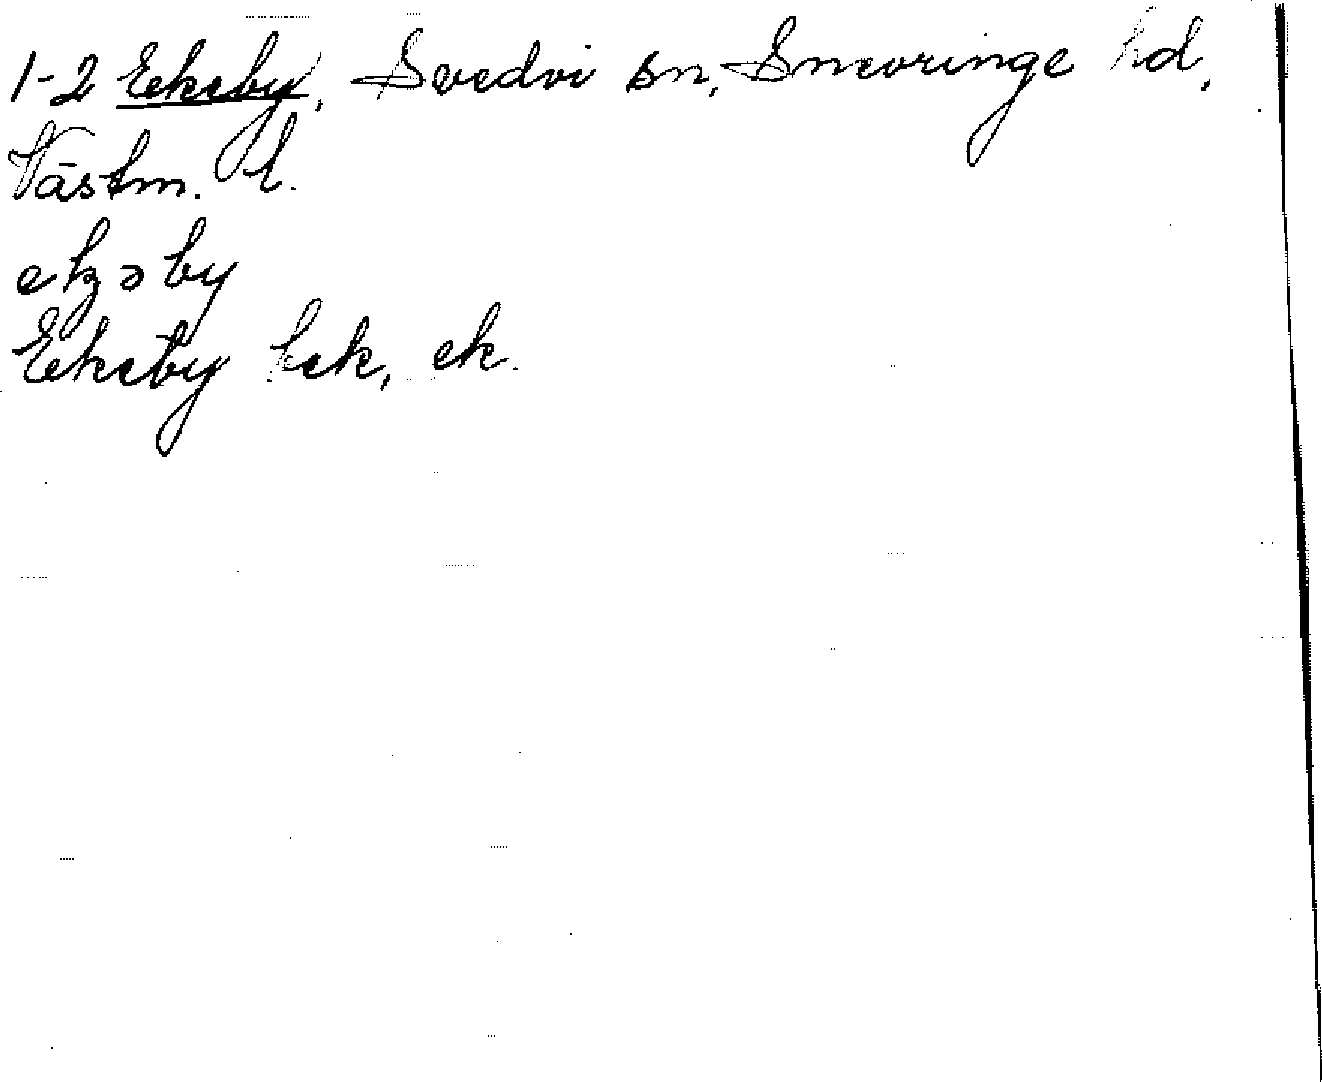 1-2 Ekeby, Svedvi sn, Snevringe hd,
Västm. l.
ekəby
Ekeby hek, ek.